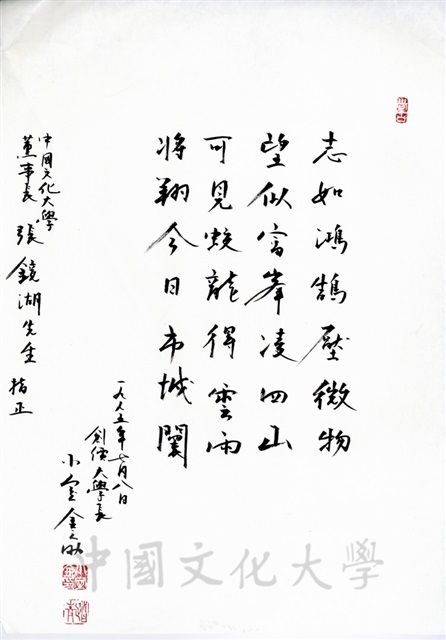 志如鴻鵠壓微物
望似富峯凌四山
可見蛟龍得雲雨
將翔今日市城闤
一九八五年七月八日
創価大學長
小室金之助
中國文化大學
董事長 張鏡湖先生 指正
中國文化大學